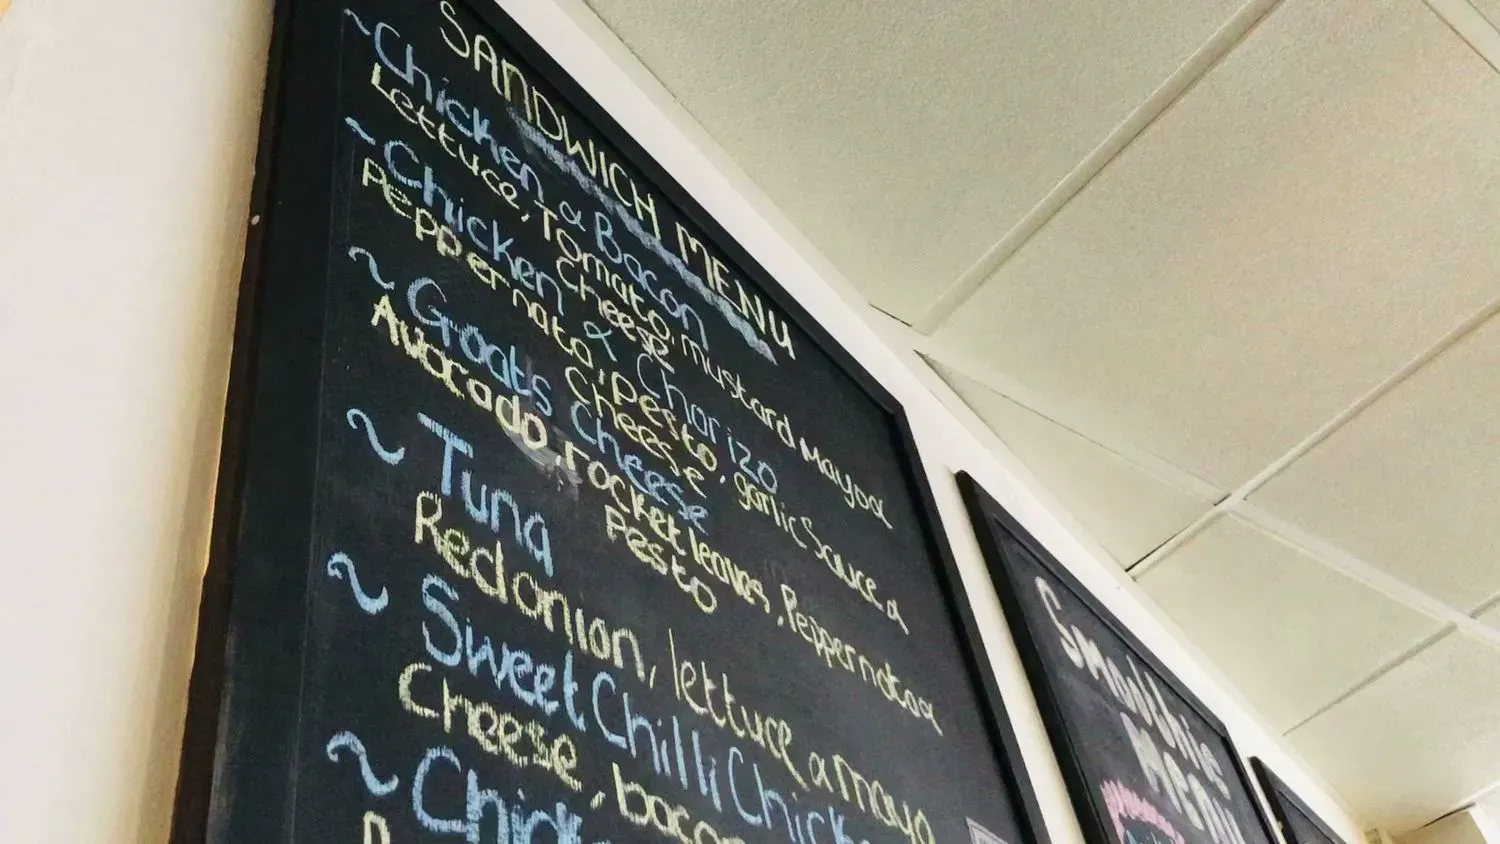 SANDWICH MENU
~ Chicken & Bacon
Lettuce, Tomato, mustard mayo &
Cheese
~ Chicken & Chorizo
Peppernata, Pesto, garlic Sauce &
Cheese
~ Goats Cheese
Avocado, rocket leaves, Peppernata &
Pesto
~ Tuna
Red onion, lettuce & mayo
~ Sweet Chilli Chick
Cheese, bacon
~ Chick
Smoothie
Menu